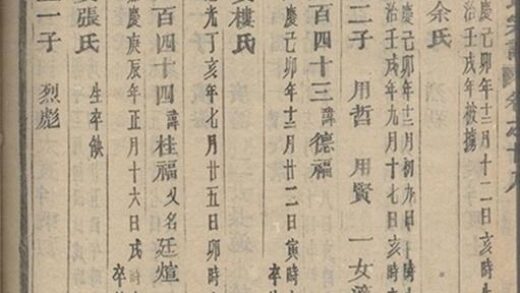 宗譜 卷之十八
慶己卯年十二月十二日亥時
治壬戌年被擄
余氏
慶己卯年十二月初九日
治壬戌年九月十七日亥時
二子 用哲 用賢 一女適
百四十三 諱德福
慶己卯年十二月廿二日寅時
卒
樓氏
光丁亥年七月廿五日卯時
百四十四 諱桂福 又名廷煊
慶庚辰年正月十六日戌
卒
張氏 生卒缺
一子 烈彪